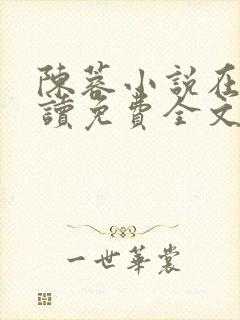 陳蓉小說在
讀免費全文
一世華裳